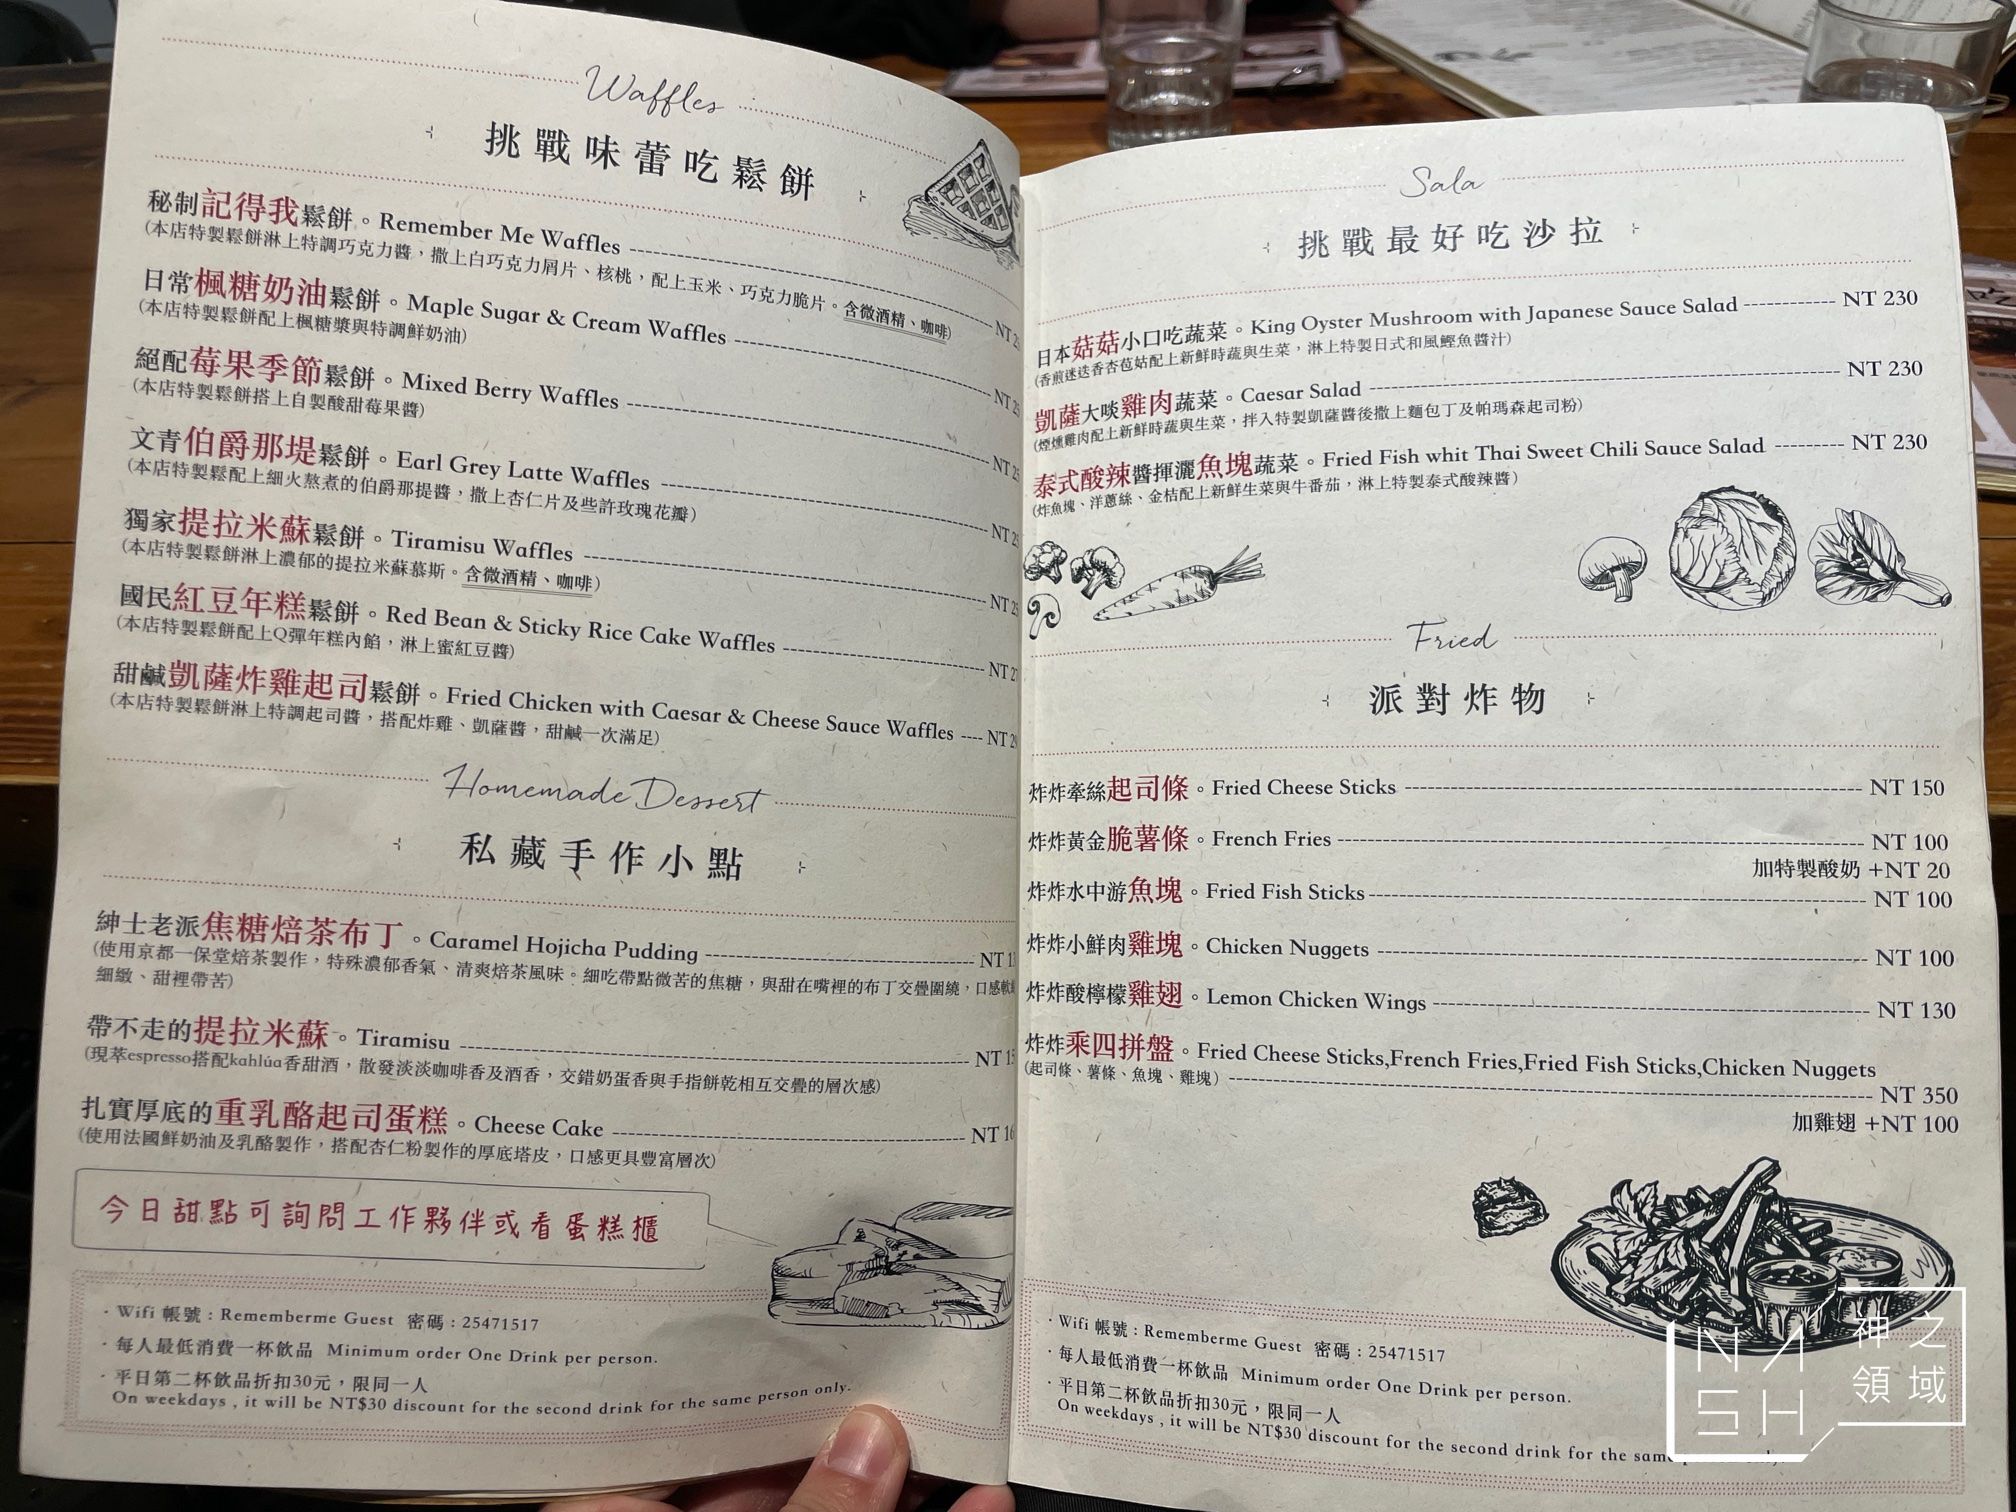 Waffles
挑戰味蕾吃鬆餅
秘制記得我鬆餅。Remember Me Waffles
(本店特製鬆餅淋上特調巧克力醬，撒上白巧克力屑片、核桃，配上玉米、巧克力脆片。含微酒精、咖啡)
日常楓糖奶油鬆餅。Maple Sugar & Cream Waffles
(本店特製鬆餅配上楓糖漿與特調鮮奶油)
絕配莓果季節鬆餅。Mixed Berry Waffles
(本店特製鬆餅搭上自製酸甜莓果醬)
文青伯爵那堤鬆餅。Earl Grey Latte Waffles
(本店特製鬆配上細火熬煮的伯爵那提醬，撒上杏仁片及些許玫瑰花瓣)
獨家提拉米蘇鬆餅。Tiramisu Waffles
(本店特製鬆餅淋上濃郁的提拉米蘇慕斯。含微酒精、咖啡)
國民紅豆年糕鬆餅。Red Bean & Sticky Rice Cake Waffles
(本店特製鬆餅配上Q彈年糕內餡，淋上蜜紅豆醬)
甜鹹凱薩炸雞起司鬆餅。Fried Chicken with Caesar & Cheese Sauce Waffles
(本店特製鬆餅淋上特調起司醬，搭配炸雞、凱薩醬，甜鹹一次滿足)
Homemade Dessert
私藏手作小點
紳士老派焦糖焙茶布丁。Caramel Hojicha Pudding
(使用京都一保堂焙茶製作，特殊濃郁香氣、清爽焙茶風味。細吃帶點微苦的焦糖，與甜在嘴裡的布丁交疊圍繞，口感
細緻、甜裡帶苦)
帶不走的提拉米蘇。Tiramisu
(現萃espresso搭配kahlúa香甜酒，散發淡淡咖啡香及酒香，交錯奶蛋香與手指餅乾相互交疊的層次感)
扎實厚底的重乳酪起司蛋糕。Cheese Cake
(使用法國鮮奶油及乳酪製作，搭配杏仁粉製作的厚底塔皮，口感更具豐富層次)
今日甜點可詢問工作夥伴或看蛋糕櫃
· Wifi 帳號：Rememberme Guest 密碼：25471517
· 每人最低消費一杯飲品 Minimum order One Drink per person.
· 平日第二杯飲品折扣30元，限同一人
On weekdays , it will be NT$30 discount for the second drink for the same person only.
Sala
挑戰最好吃沙拉
日本菇菇小口吃蔬菜。King Oyster Mushroom with Japanese Sauce Salad NT 230
(香煎迷迭香杏苞菇配上新鮮時蔬與生菜，淋上特製日式和風鰹魚醬汁)
凱薩大啖雞肉蔬菜。Caesar Salad NT 230
(煙燻雞肉配上新鮮時蔬與生菜，拌入特製凱薩醬後撒上麵包丁及帕瑪森起司粉)
泰式酸辣醬揮灑魚塊蔬菜。Fried Fish whit Thai Sweet Chili Sauce Salad NT 230
(炸魚塊、洋蔥絲、金桔配上新鮮生菜與牛番茄，淋上特製泰式酸辣醬)
Fried
派對炸物
炸炸牽絲起司條。Fried Cheese Sticks NT 150
炸炸黃金脆薯條。French Fries NT 100
加特製酸奶 +NT 20
炸炸水中游魚塊。Fried Fish Sticks NT 100
炸炸小鮮肉雞塊。Chicken Nuggets NT 100
炸炸酸檸檬雞翅。Lemon Chicken Wings NT 130
炸炸乘四拼盤。Fried Cheese Sticks,French Fries,Fried Fish Sticks,Chicken Nuggets
(起司條、薯條、魚塊、雞塊) NT 350
加雞翅 +NT 100
· Wifi 帳號：Rememberme Guest 密碼：25471517
· 每人最低消費一杯飲品 Minimum order One Drink per person.
· 平日第二杯飲品折扣30元，限同一人
On weekdays , it will be NT$30 discount for the second drink for the
NASH
神之領域